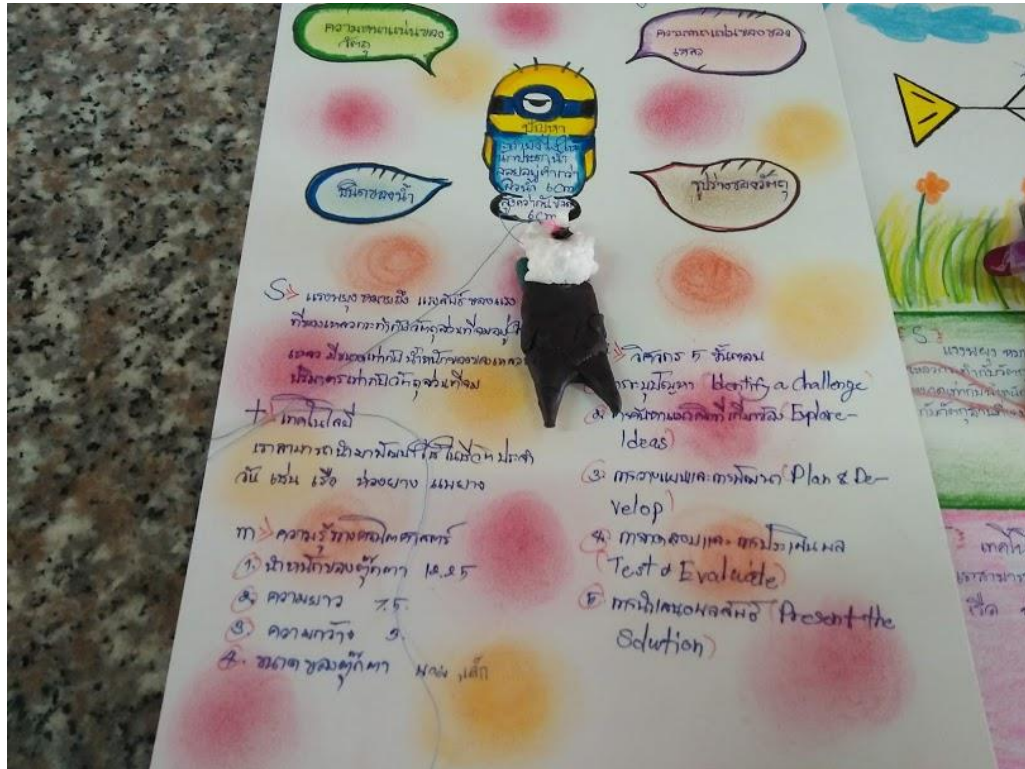 ความหนาแน่นของ
วัตถุ
ความหนาแน่นของของ
เหลว
ปัญหา
ลอยอยู่ต่ำกว่า
ผิวน้ำ 6cm
6cm
ชนิดของน้ำ
รูปร่างของวัตถุ
S แรงพยุง หมายถึง แรงลัพธ์ของแรง
ที่ของเหลวกระทำกับวัตถุส่วนที่จมอยู่
เหลว มีขนาดเท่ากับน้ำหนักของของเหลว
ปริมาตรเท่ากับวัตถุส่วนที่จม
T เทคโนโลยี
เราสามารถนำมาพัฒนาใช้ในชีวิตประจำ
วัน เช่น เรือ ห่วงยาง แพยาง
m ความรู้ทางคณิตศาสตร์
1. น้ำหนักของตุ๊กตา 12.25
2. ความยาว 7.5
3. ความกว้าง 3
4. ขนาดของตุ๊กตา
วิศวกร 5 ขั้นตอน
การระบุปัญหา (Identify a challenge)
2. การค้นหาแนวคิดที่เกี่ยวข้อง (Explore
Ideas)
3. การวางแผนและการพัฒนา (Plan & De-
velop)
4. การทดสอบและการประเมินผล
(Test & Evaluate)
5 การนำเสนอผลลัพธ์ (Present the
Solution)
S
แรงพยุง